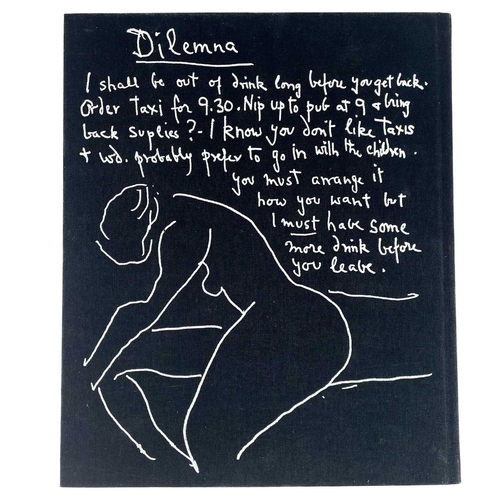 Dilemna
I shall be out of drink long before you get back.
Order taxi for 9.30. Nip up to pub at 9 & bring
back suplies? - I know you don't like taxis
+ wd. probably prefer to go in with the children.
you must arrange it
how you want but
I must habe some
more drink before
you leabe.